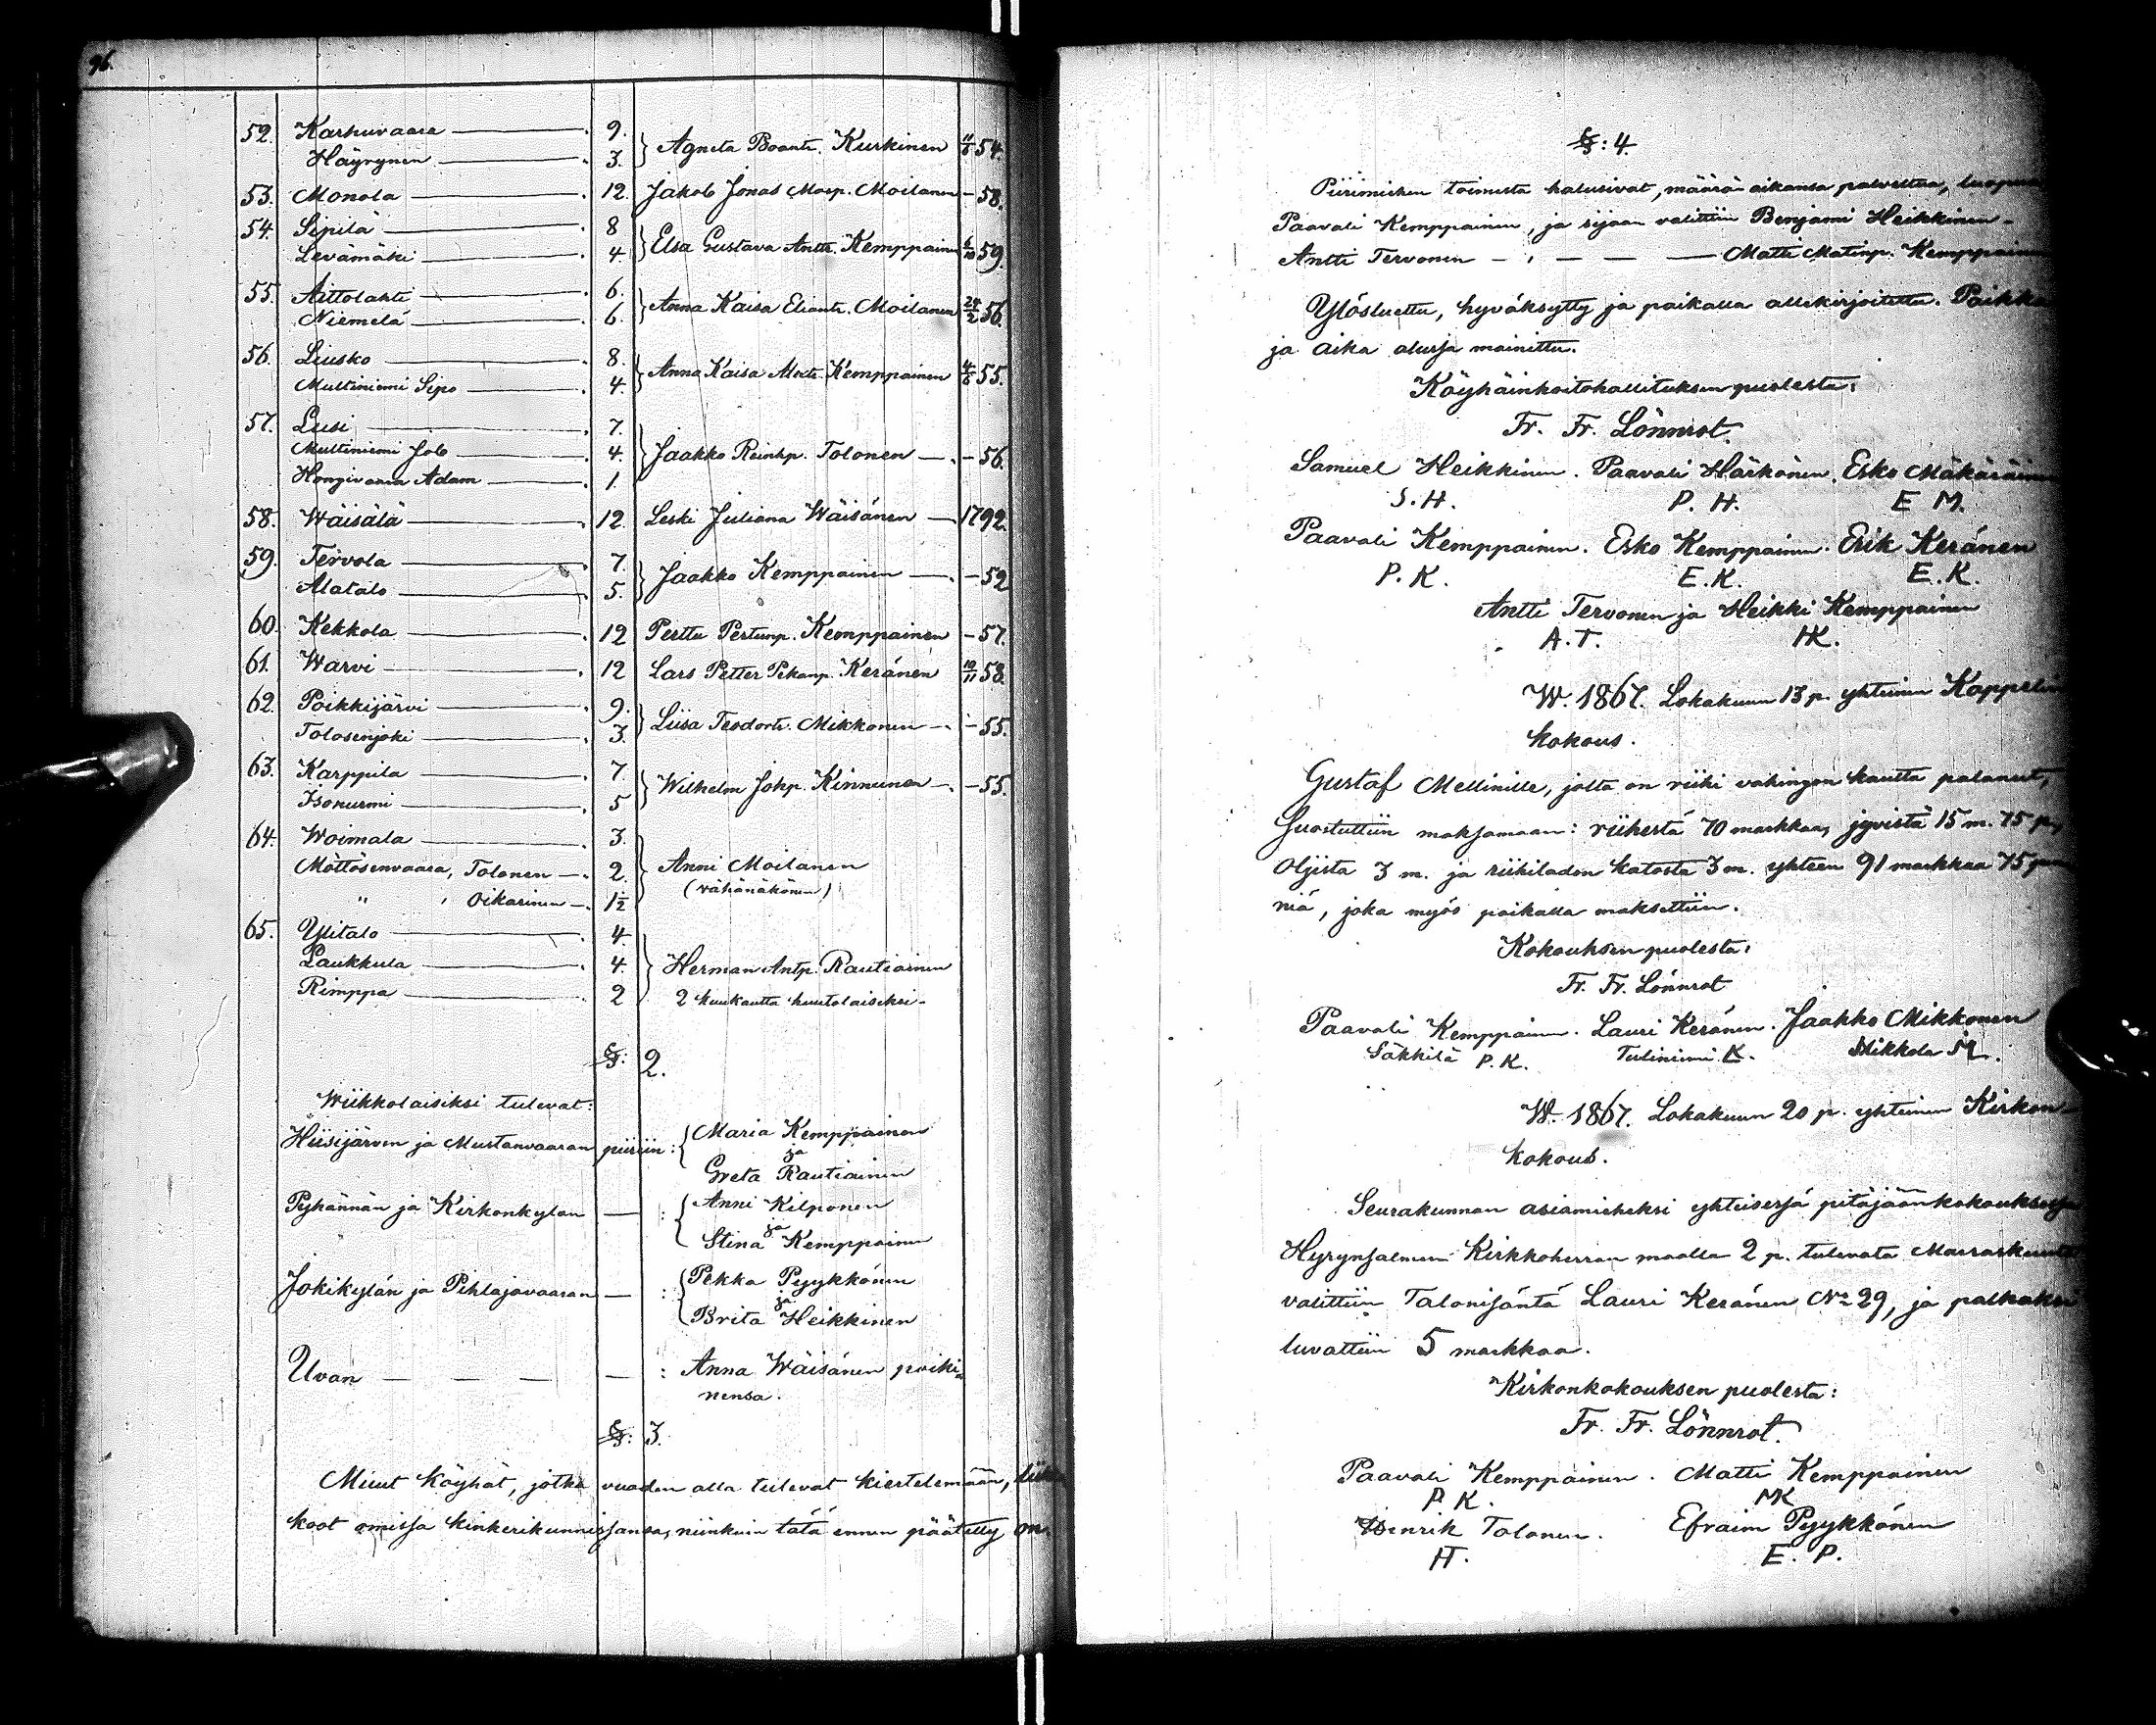 96.
52. Karhuvaara 9. Agneta Kurkinen 11/6 54.
Häyrynen 3.
53. Monola 12. Jakob Jonas Matp. Moilanen - 58.
54. Sipilä 8 Elsa Gustava Antt. Kemppainen 6/10 59.
Levämäki 4
55. Aittolahti 6. Anna Kaisa Eliant. Moilanen 24/2 56.
Niemelä 6.
56. Liusko 8. Anna Kaisa Kemppainen 4/6 55.
Multiniemi Sipo 4.
57. Lusi 7.
Multiniemi Job 4. Jaakko Reinhp. Tolonen - 56.
Hongivaara Adam 1.
58. Wäisälä 12. Leski Juliana Wäisänen 1792.
59. Tervola 7. Jaakko Kemppainen - 52
Alatalo 5.
60. Kekkola 12 Perttu Pertunp. Kemppainen - 57.
61. Warvi 12 Lars Petter Pekanp. Keränen 19/11 58.
62. Poikkijärvi 9. Liisa Teodort. Mikkonen - 55.
Tolosenjoki 3.
63. Karppila 7. Wilhelm Johp. Kinnunen - 55.
Isonurmi 5
64. Woimala 3.
Möttösenvaara, Tolonen 2. Anni Moilanen
" , Oikarinen 1 1/2 (vähänäkönen)
65. Ylitalo 4.
Laukkula 4. Herman Antp. Rautiainen
Rimppa 2 2 kuukautta huutolaiseksi.
§: 2.
Wiikkolaisiksi tulevat:
Hiisijärven ja Mustanvaaran piiriin: Maria Kemppainen
ja
Greta Rautiainen
Pyhännän ja Kirkonkylän — : Anni Kilponen
ja
Stina Kemppainen
Jokikylän ja Pihlajavaaran — : Pekka Pyykkönen
ja
Brita Heikkinen
Uvan — — — — : Anna Wäisänen poiki-
nensa.
§: 3.
Muut köyhät, jotka vuoden alla tulevat kiertelemään,
koot omissa kinkerikunnissansa, niinkuin tätä ennen päätetty on.
§: 4.
Piirimiehen toimesta halusivat, määrä aikansa palveltua,
Paavali Kemppainen, ja sijaan valittiin Benjami Heikkinen -
Antti Tervonen - , — — — Matti Matinp. Kemppainen
Ylösluettu, hyväksytty ja paikalla allekirjoitettu. Paikka
ja aika alussa mainittu.
Köyhäinhoitohallituksen puolesta:
Fr. Fr. Lönnrot.
Samuel Heikkinen. Paavali Härkönen. Esko Mäkäräinen
S. H. P. H. E M.
Paavali Kemppainen. Esko Kemppainen. Erik Keränen
P. K. E. K. E. K.
Antti Tervonen ja Heikki Kemppainen
A. T. HK.
W. 1867. Lokakuun 13 p. yhteinen Kappelin
kokous.
Gustaf Mellinille, jolta on riihi vahingon kautta palanut,
suostuttiin maksamaan: riihestä 70 markkaa, jyvistä 15 m. 75 p.,
Oljista 3 m. ja riihiladon katosta 3 m. yhteen 91 markkaa 75 pen
niä, joka myös paikalla maksettiin.
Kokouksen puolesta:
Fr. Fr. Lönnrot
Paavali Kemppainen. Lauri Keränen. Jaakko Mikkonen
Säkkilä P. K. Tuliniemi K. Mikkola
W. 1867. Lokakuun 20 p. yhteinen Kirkon-
kokous.
Seurakunnan asiamieheksi yhteisessä pitäjäänkokouksessa
Hyrynsalmen Kirkkoherran maalla 2 p. tulevata Marraskuuta
valittiin Talonisäntä Lauri Keränen No 29, ja palkaksi
luvattiin 5 markkaa.
Kirkonkokouksen puolesta:
Fr. Fr. Lönnrot.
Paavali Kemppainen. Matti Kemppainen
P. K. MK
Henrik Tolonen. Efraim Pyykkönen
H. E. P.